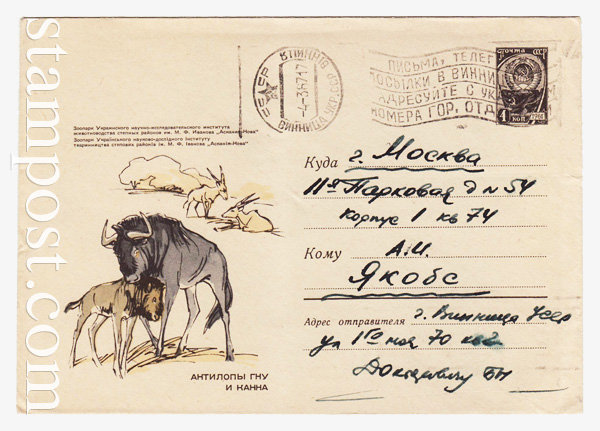 stampost.com
СССР
ВІННИЦЯ
-4.3.6717
ВИННИЦА УКР.ССР
ПИСЬМА, ТЕЛЕГ
ПОСЫЛКИ В ВИННИ
АДРЕСУЙТЕ С УК
НОМЕРА ГОР. ОТД
ПОЧТА СССР
4 КОП
Зоопарк Украинского научно-исследовательского института
животноводства степных районов им. М. Ф. Иванова „Аскания-Нова"
Зоопарк Українського науково-дослідного інституту
тваринництва степових районів ім. М. Ф. Іванова „Асканія-Нова"
Куда г. Москва
11я Парковая д №54
корпус 1 кв 74
Кому А.И.
Якобс
Адрес отправителя г. Винница УССР
ул 1го мая 70 кв2
БН
АНТИЛОПЫ ГНУ
И КАННА